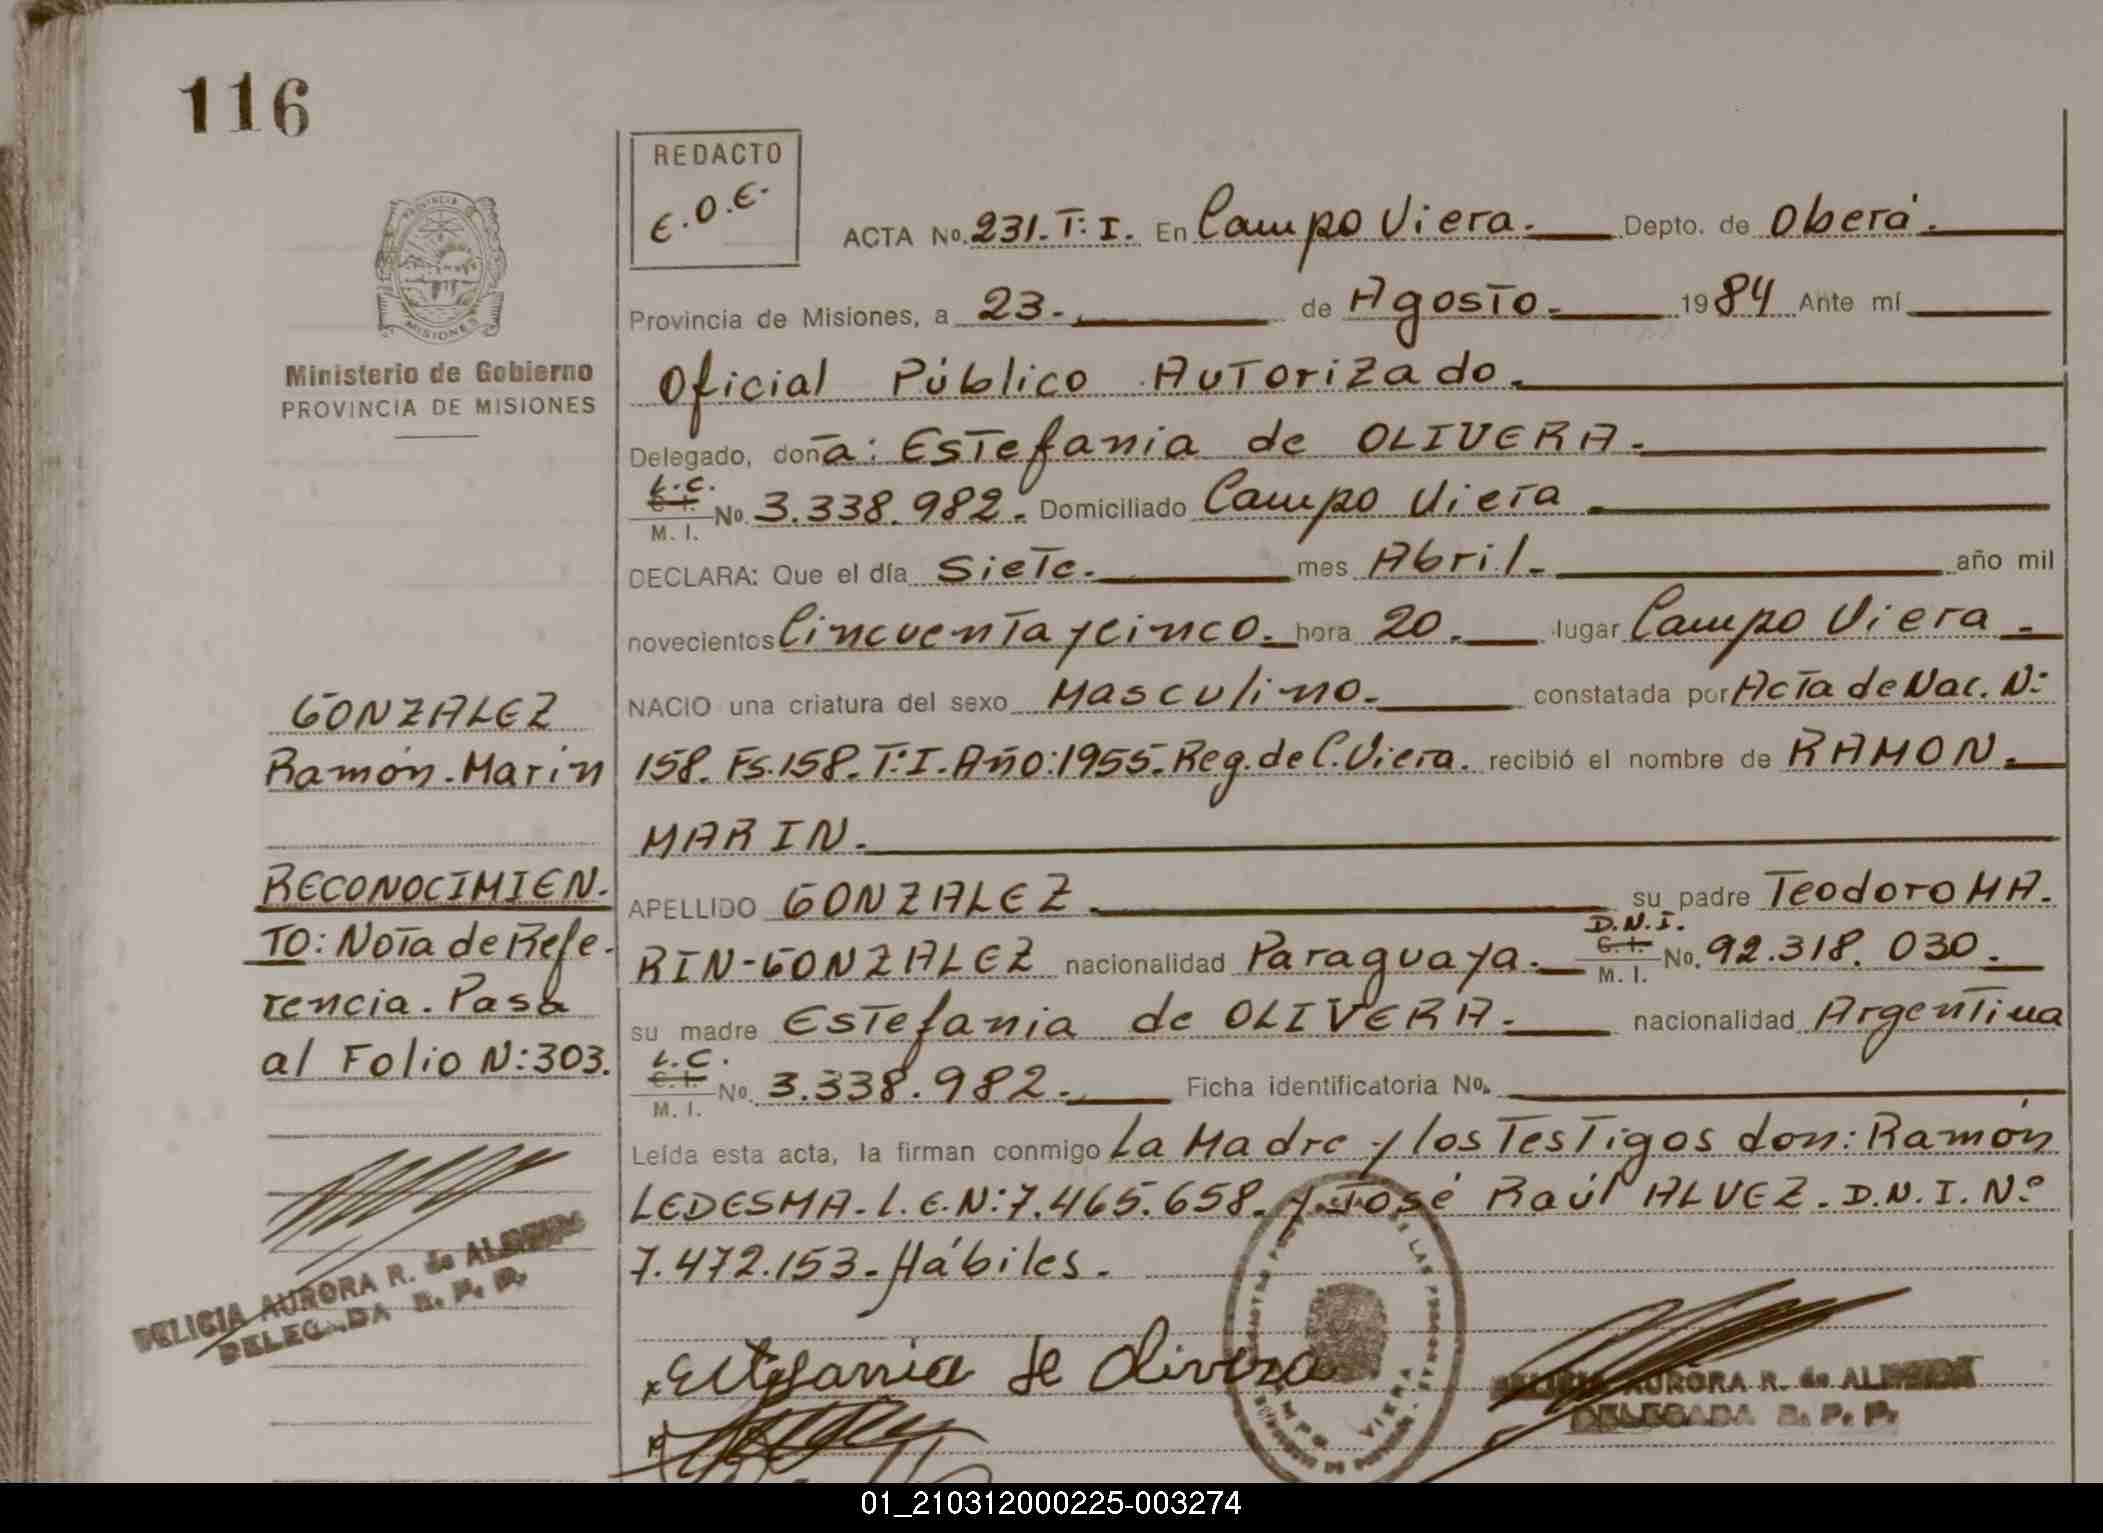 116
PROVINCIA
MISIONES
Ministerio de Gobierno
PROVINCIA DE MISIONES
GONZALEZ
Ramón. Marin
RECONOCIMIEN.
TO: Nota de Refe-
rencia. Pasa
al Folio N: 303.
DELICIA AURORA R. de
DELEGADA R. P. P.
REDACTO
E.O.E.
ACTA No. 231. T: I. En Campo Viera. Depto. de Oberá.
Provincia de Misiones, a 23. de Agosto. 1984 Ante mí
Oficial Público Autorizado.
Delegado, doña: Estefania de OLIVERA.
L.C.
C. I.
M. I. No. 3.338.982. Domiciliado Campo Viera
DECLARA: Que el día Siete. mes Abril. año mil
novecientos Cincuenta y cinco. hora 20. lugar Campo Viera.
NACIO una criatura del sexo Masculino. constatada por Acta de Nac. N:
158. Fs. 158. T: I. Año: 1955. Reg. de C. Viera. recibió el nombre de RAMON.
MARIN.
APELLIDO GONZALEZ. su padre Teodoro MA.
D.N.I.
RIN-GONZALEZ nacionalidad Paraguaya. C. I. M. I. No. 92.318.030.
su madre Estefania de OLIVERA. nacionalidad Argentina
L.C.
C. I.
M. I. No. 3.338.982. Ficha identificatoria No.
Leída esta acta, la firman conmigo La Madre y los Testigos don: Ramón
LEDESMA. L.E.N: 7.465.658. y José Raúl ALVEZ. D.N.I. Nº
7.472.153. Hábiles.
Estefania de Olivera
VIERA
AURORA R. de
DELEGADA R. P. P.
01_210312000225-003274